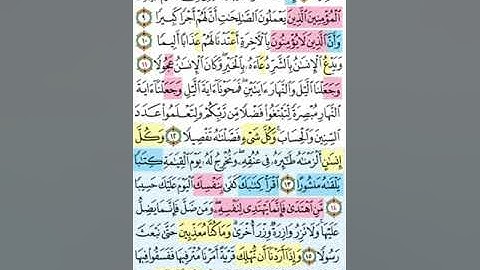 ٱلْمُؤْمِنِينَ ٱلَّذِينَ يَعْمَلُونَ ٱلصَّٰلِحَٰتِ أَنَّ لَهُمْ أَجْرًا كَبِيرًا ٩
وَأَنَّ ٱلَّذِينَ لَا يُؤْمِنُونَ بِٱلْءَاخِرَةِ أَعْتَدْنَا لَهُمْ عَذَابًا أَلِيمًا ١٠
وَيَدْعُ ٱلْإِنسَٰنُ بِٱلشَّرِّ دُعَآءَهُۥ بِٱلْخَيْرِ وَكَانَ ٱلْإِنسَٰنُ عَجُولًا ١١
وَجَعَلْنَا ٱلَّيْلَ وَٱلنَّهَارَ ءَايَتَيْنِ فَمَحَوْنَآ ءَايَةَ ٱلَّيْلِ وَجَعَلْنَآ ءَايَةَ
ٱلنَّهَارِ مُبْصِرَةً لِّتَبْتَغُوا۟ فَضْلًا مِّن رَّبِّكُمْ وَلِتَعْلَمُوا۟ عَدَدَ
ٱلسِّنِينَ وَٱلْحِسَابَ وَكُلَّ شَىْءٍ فَصَّلْنَٰهُ تَفْصِيلًا ١٢ وَكُلَّ
إِنسَٰنٍ أَلْزَمْنَٰهُ طَٰٓئِرَهُۥ فِى عُنُقِهِۦ وَنُخْرِجُ لَهُۥ يَوْمَ ٱلْقِيَٰمَةِ كِتَٰبًا
يَلْقَىٰهُ مَنشُورًا ١٣ ٱقْرَأْ كِتَٰبَكَ كَفَىٰ بِنَفْسِكَ ٱلْيَوْمَ عَلَيْكَ حَسِيبًا
١٤ مَّنِ ٱهْتَدَىٰ فَإِنَّمَا يَهْتَدِى لِنَفْسِهِۦ وَمَن ضَلَّ فَإِنَّمَا يَضِلُّ
عَلَيْهَا وَلَا تَزِرُ وَازِرَةٌ وِزْرَ أُخْرَىٰ وَمَا كُنَّا مُعَذِّبِينَ حَتَّىٰ نَبْعَثَ
رَسُولًا ١٥ وَإِذَآ أَرَدْنَآ أَن نُّهْلِكَ قَرْيَةً أَمَرْنَا مُتْرَفِيهَا فَفَسَقُوا۟ فِيهَا